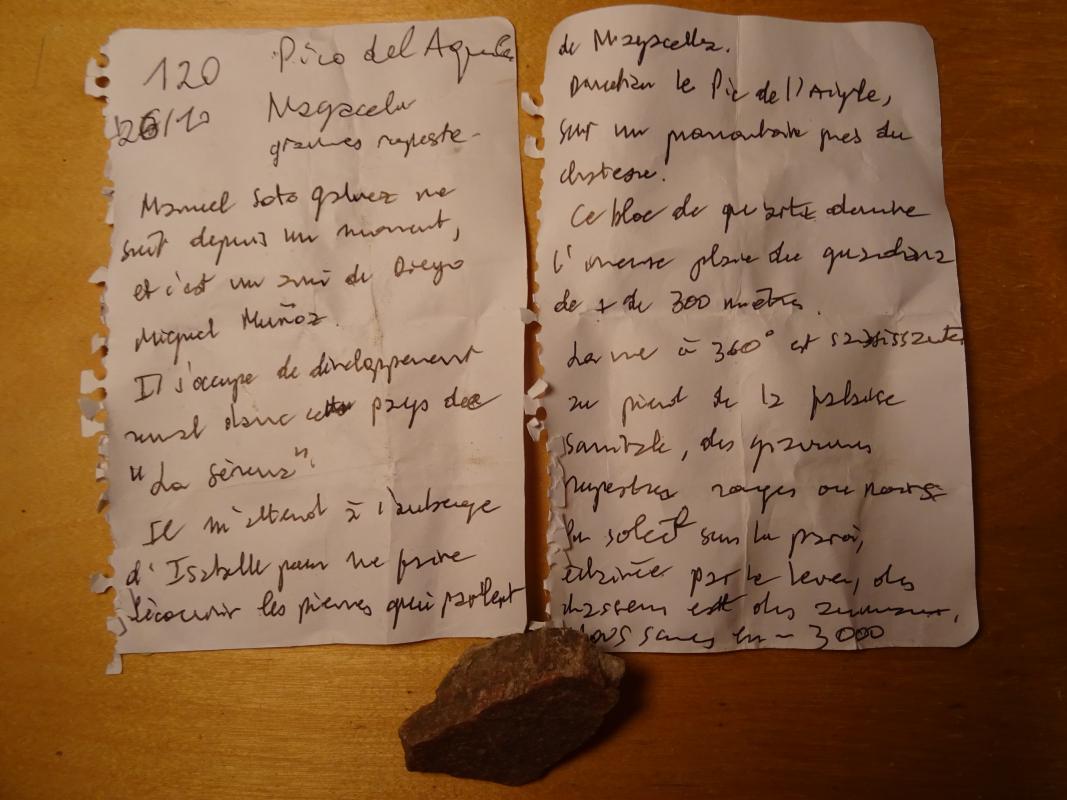 120 Pico del Aguila
26/10 Magacela
gravures rupestre-
Manuel Soto Galvez me
suit depuis un moment,
et c'est un ami de Diego
Miguel Muñoz.
Il s'occupe de développement
rural dans ce pays de
"La Serena".
Il m'attend à l'auberge
d'Isabelle pour me faire
découvrir les pierres qui parlent
de Magacella.
Direction le Pic de l'Aigle,
sur un promontoire près du
chateau.
Ce bloc de quartz domine
l'immense plaine du guadiana
de + de 300 mètres.
La vue à 360° est saisissante
au pied de la falaise
, des gravures
rupestres rouges ou noires
un soleil sur la paroi,
éclairée par le lever, des
chasseurs et des animaux,
nous sommes en - 3000